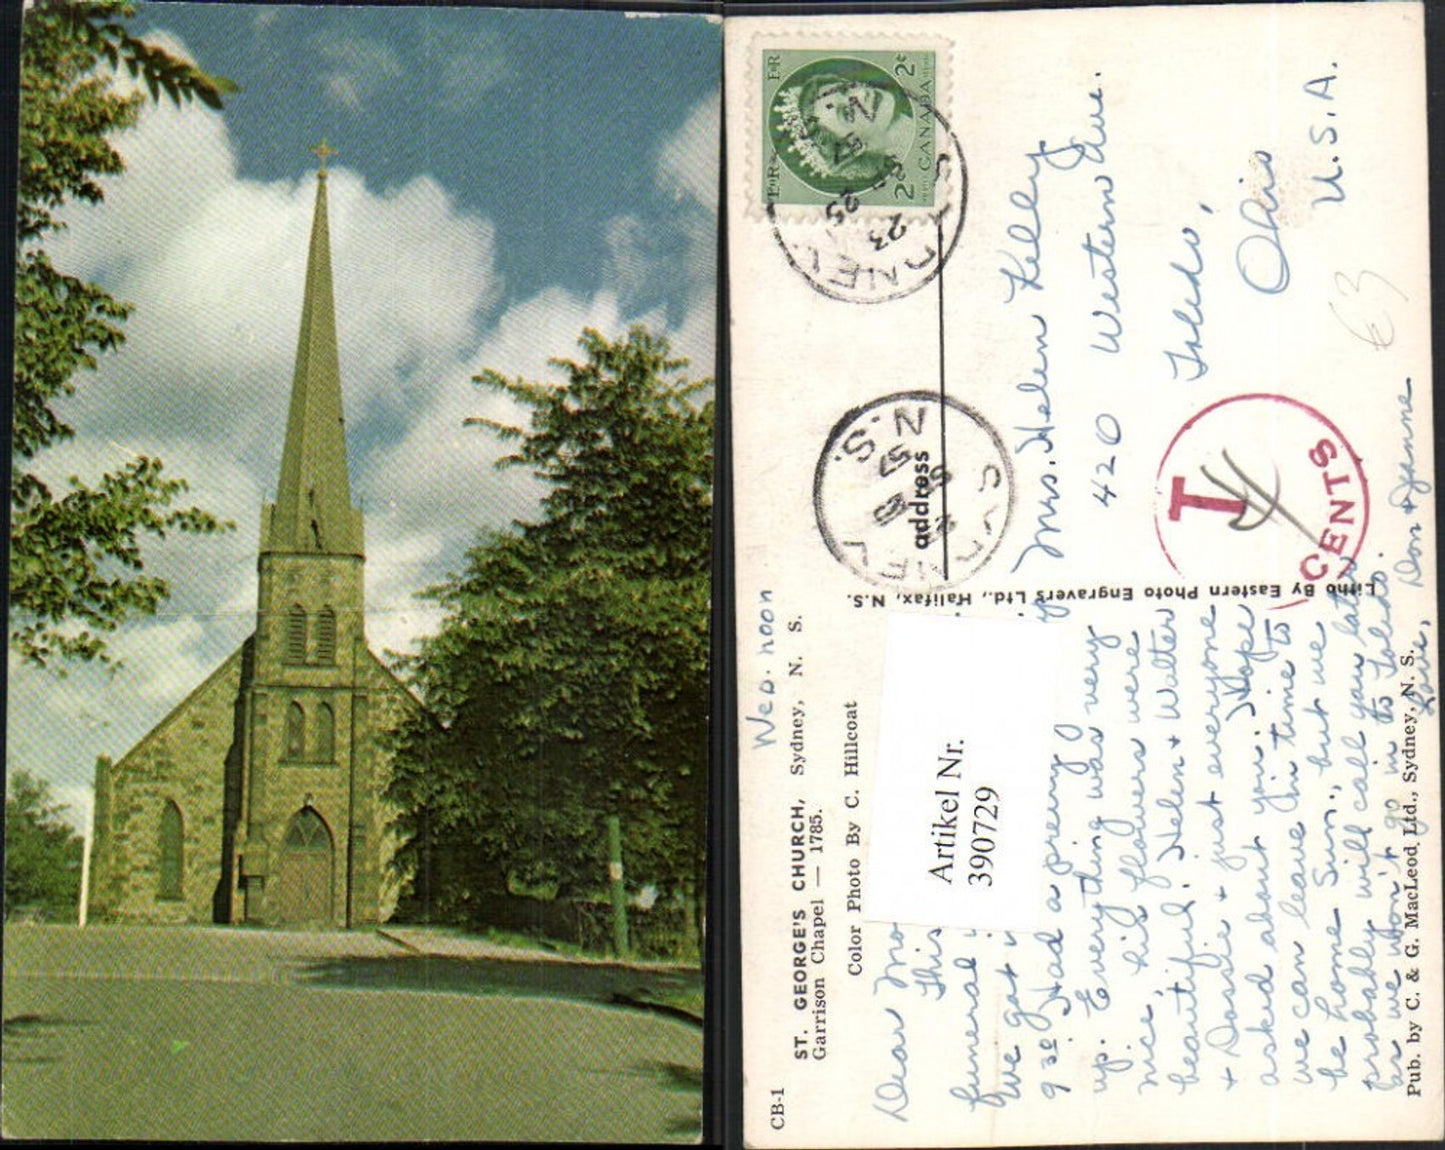 CB-1
ST. GEORGE'S CHURCH, Sydney, N. S.
Garrison Chapel — 1785.
Color Photo By C. Hillcoat
Wed. noon
Dear
This
funeral
we got
9:30. Had a
up. Everything was very
nice, his flowers were
beautiful. Helen + Walter
+ + just everyone
asked about you. Hope
we can leave in time to
be home Sun., but we
probably will call you late
as we won't go in to Toledo.
Love, Don +
Pub. by C. & G. MacLeod Ltd., Sydney, N. S.
Litho By Eastern Photo Engravers Ltd., Halifax, N.S.
Artikel Nr.
390729
address
Mrs. Helen Kelly
420 Western Ave.
Toledo,
Ohio
U.S.A.
E II R
2¢
CANADA
2¢
SYDNEY
N.S.
23
57
SYDNEY
N.S.
57
T
4
CENTS
€3